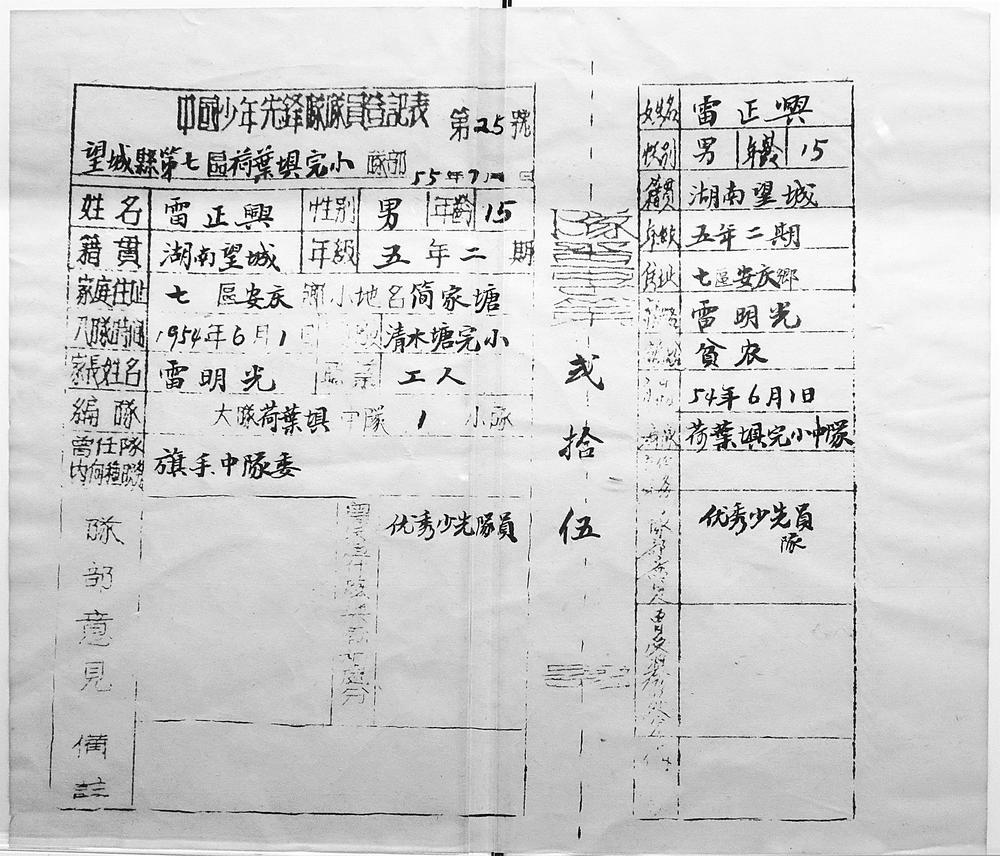 中國少年先鋒隊隊員登記表
第25號
望城縣第七區荷葉塤完小 隊部
55年7月 日
姓名 雷正興 性別 男 年齡 15
籍貫 湖南望城 年級 五年二期
家庭住址 七區安庆鄉小地名简家塘
入隊時間 1954年6月1日 清水塘完小
家長姓名 雷明光 職業 工人
編隊 大隊荷葉塤中隊 1 小隊
曾任隊
内何種職務 旗手中隊委
隊部意見
优秀少先隊員
備註
弍拾伍
姓名 雷正興
性別 男 年齡 15
籍貫 湖南望城
年級 五年二期
住址 七區安庆鄉
雷明光
貧农
54年6月1日
荷葉塤完小中隊
隊部意見
优秀少先員
隊